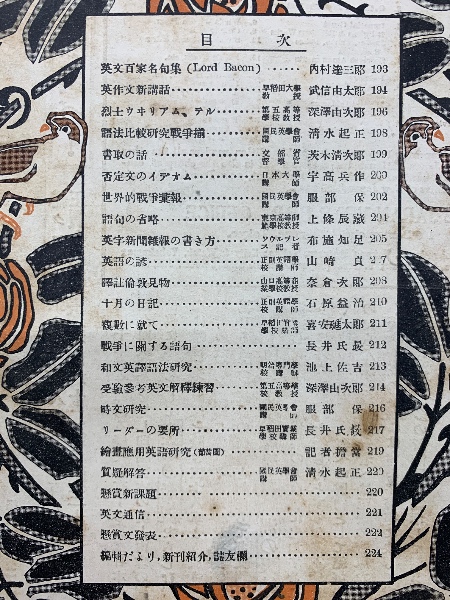 目次
英文百家名句集 (Lord Bacon) 內村達三郎 193
英作文新講話 早稻田大學教授 武信由太郎 194
烈士ウヰリアム、テル 第五高等學校教授 深澤由次郎 196
語法比較研究戰爭描 國民英學會講師 淸水起正 198
書取の話 文部省督學官 茨木淸次郎 199
否定文のイデオム 日本大學講師 宇高兵作 200
世界的戰爭彙報 國民英學會講師 服部保 202
語句の省略 東京高等師範學校教授 上條辰藏 204
英字新聞雜報の書き方 ソウルプレス記者 布施知足 205
英語の諺 正則英語學校講師 山崎貞 207
譯註倫敦見物 山口高等商業學校教授 奈倉次郎 208
十月の日記 正則英語學校講師 石原益治 210
複數に就て 早稻田實業學校講師 喜安璡太郎 211
戰爭に關する語句 長井氏㝡 212
和文英譯語法研究 明治專門學校講師 池上佐吉 213
受驗參考英文解釋練習 第五高等學校教授 深澤由次郎 214
時文研究 國民英學會講師 服部保 216
リーダーの要所 早稻田實業學校講師 長井氏㝡 217
繪畫應用英語研究(葡萄園) 記者擔當 219
質疑解答 國民英學會講師 淸水起正 220
懸賞新課題 220
英文通信 221
懸賞文發表 222
編輯だより,新刊紹介,諸友欄 224